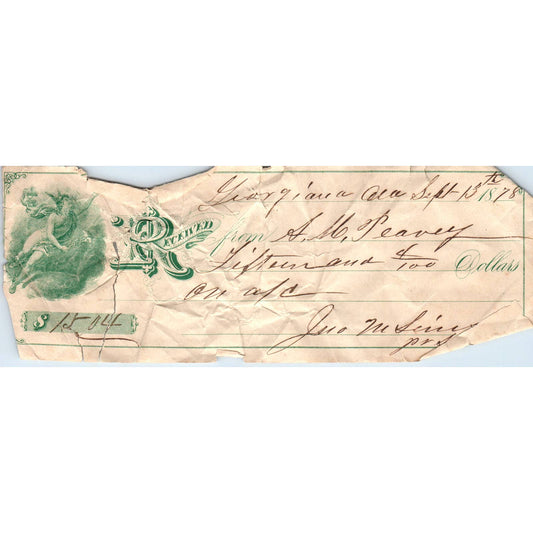 Georgiana Ala Sept 13th 1878
Received from A. M. Peavey
Fifteen and 4/100 Dollars
On a/c
$ 15.04
Jno M